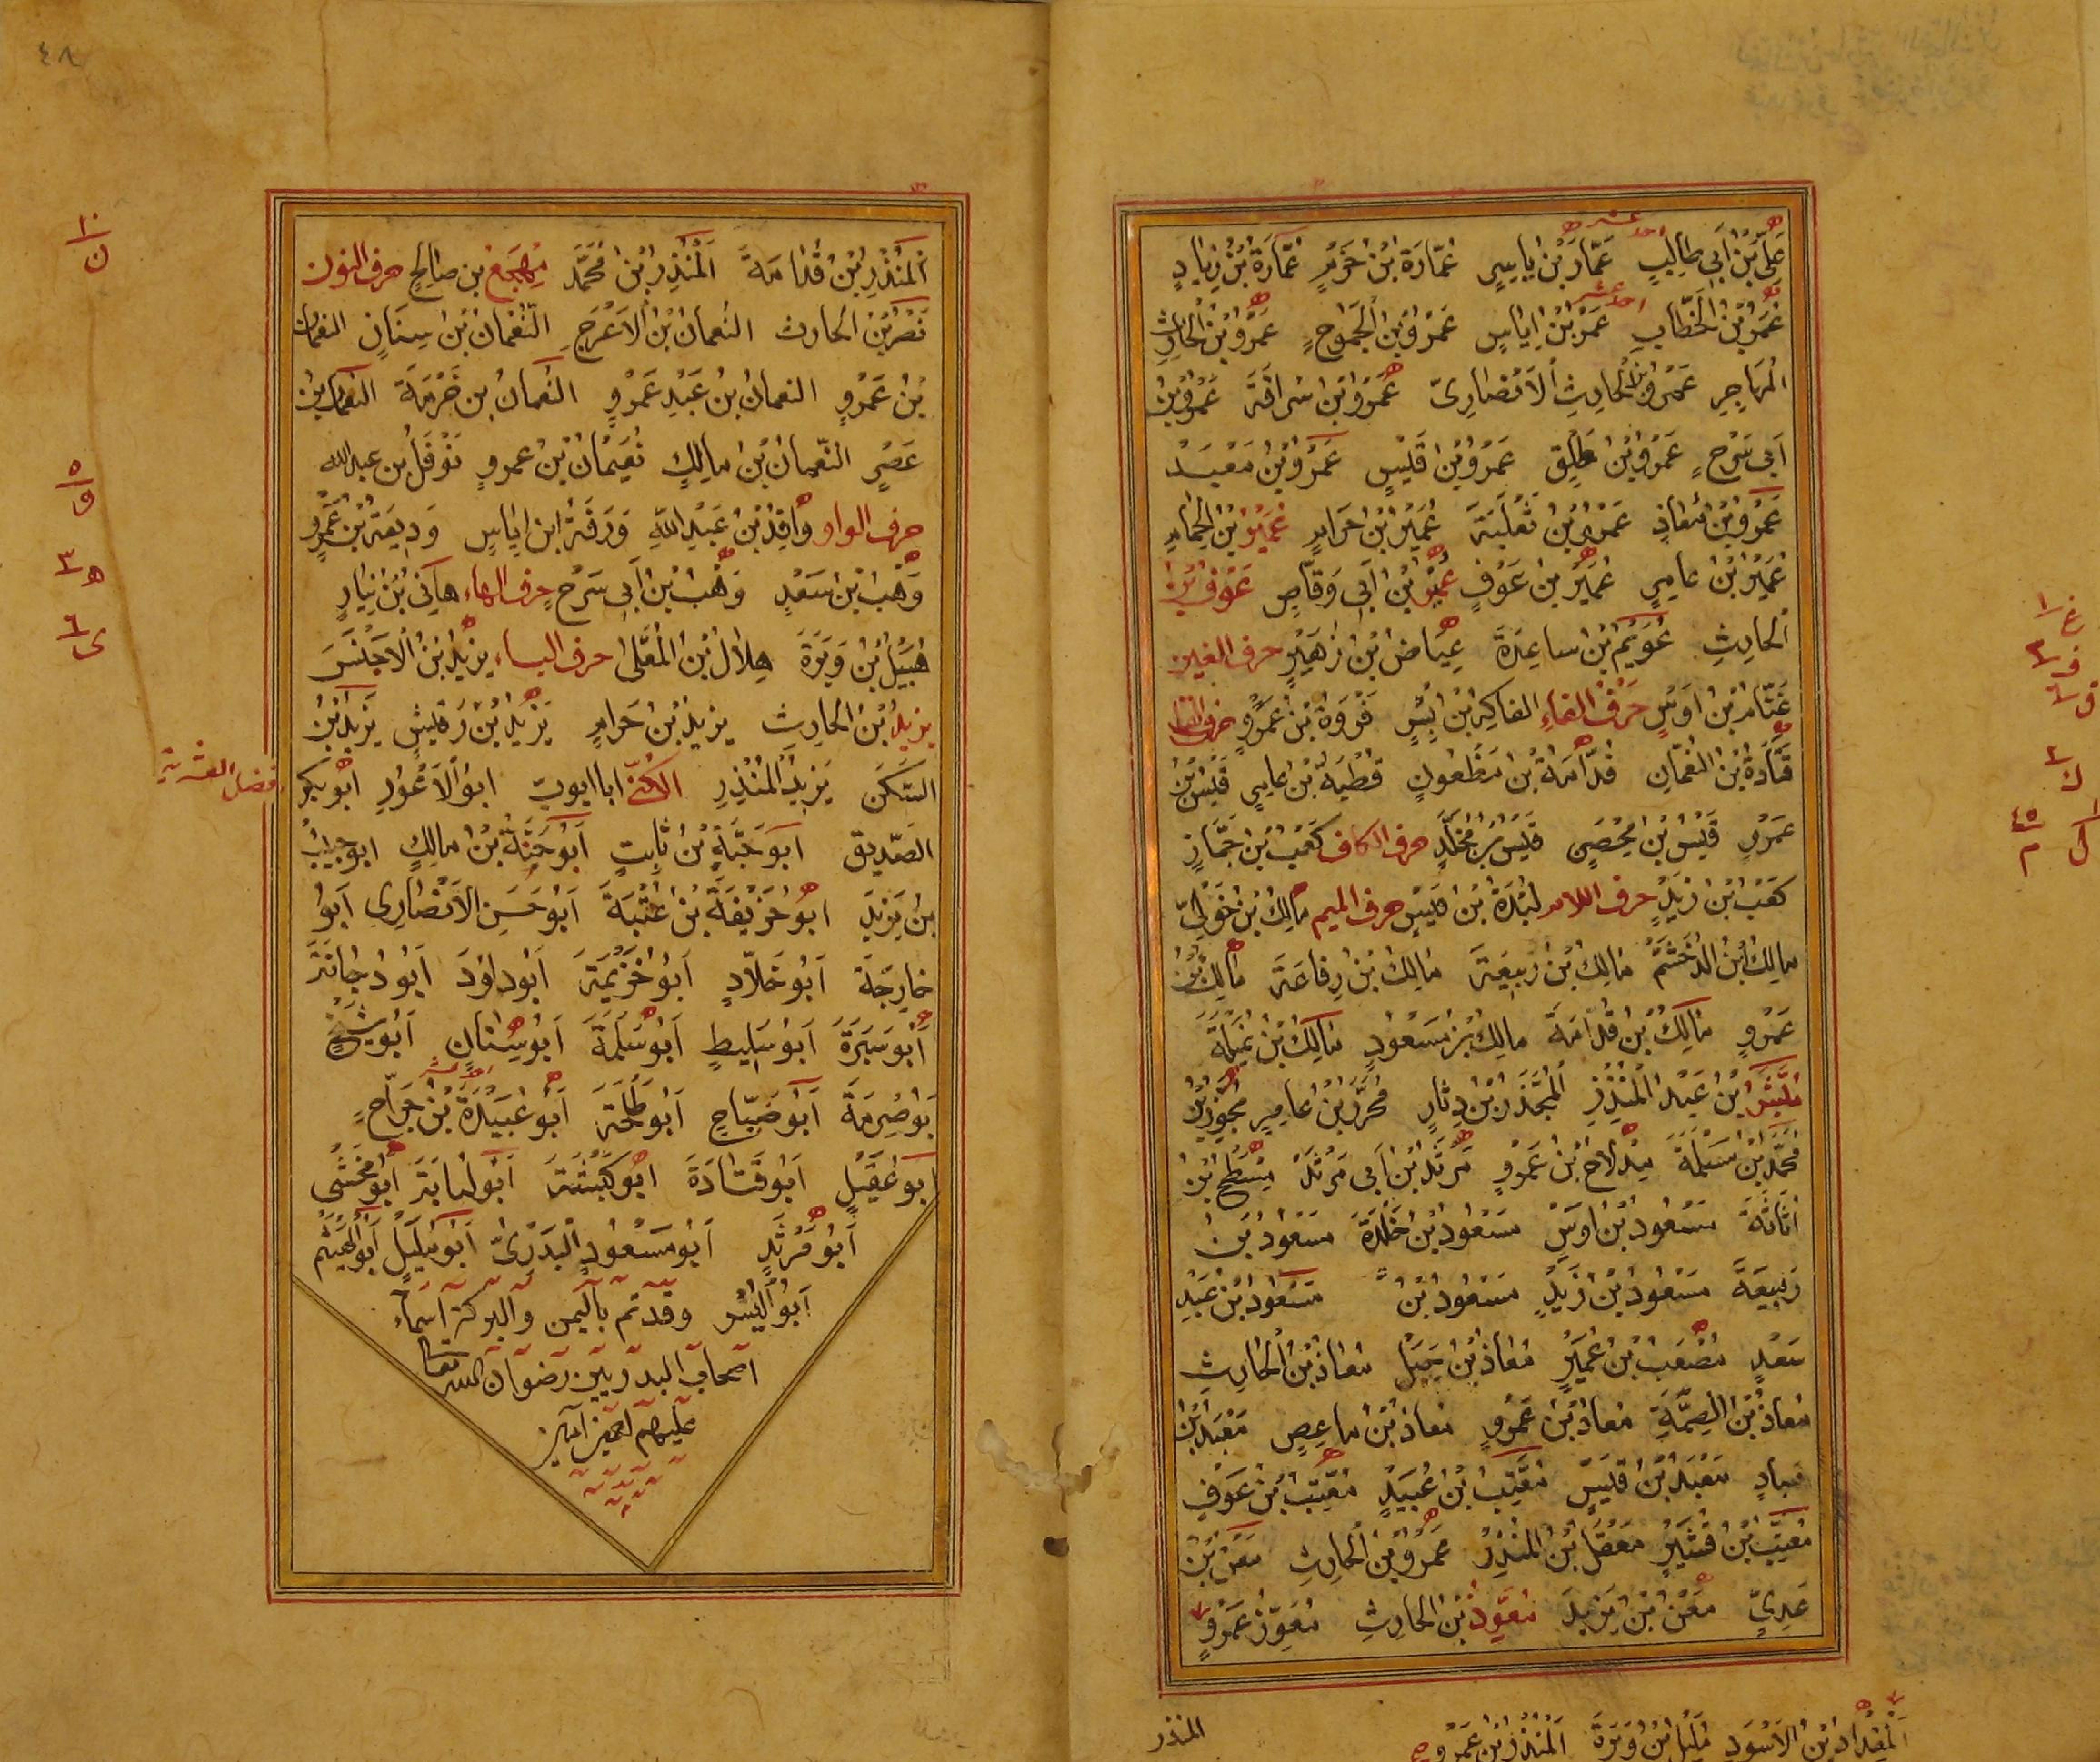 عَلِىُّ بْنُ اَبى طٰالِبٍ عَمَّارُ بْنُ يٰاسِرٍ عُمٰارَةُ بْنُ حَزْمٍ عُمٰارَةُ بْنُ زِيٰادٍ
عُمَرُ بْنُ الْخَطّابِ عَمْرُ بْنُ اِيٰاسٍ عَمْرُو بْنُ الْجَمُوحِ عَمْرُو بْنُ الْحٰارِثِ
الْمُهٰاجِرِ عَمْرُو بْنُ الْحٰارِثِ الْاَنْصٰارِىّ عَمْرُو بْنُ سُرٰاقَةَ عَمْرُو بْنُ
اَبى سَرْحٍ عَمْرُو بْنُ طَلِقٍ عَمْرُو بْنُ قَيْسٍ عَمْرُو بْنُ مَعْبَدْ
عَمْرُو بْنُ مُعٰاذٍ عَمْرُو بْنُ ثَعْلَبَةَ عُمَيْرُ بْنُ حَرٰامٍ عُمَيْرُ بْنُ الْحُمٰامِ
عُمَيْرُ بْنُ عٰامِرٍ عُمَيْرُ بْنُ عَوْفٍ عُمَيْرُ بْنُ اَبى وَقّاصٍ عَوْفُ بْنُ
الْحٰارِثِ عُوَيْمُ بْنُ سٰاعِدَةَ عِيٰاضُ بْنُ زُهَيْرٍ حرف الغين
غَنّامُ بْنُ اَوْسٍ حَرْفُ الفٰاءِ الفٰاكِهُ بْنُ بِشْرٍ فَرْوَةُ بْنُ عَمْرٍو حرف القاف
قَتٰادَةُ بْنُ النُّعْمٰانِ قُدٰامَةُ بْنُ مَظْعُونٍ قُطْبَةُ بْنُ عٰامِرٍ قَيْسُ بْنُ
عَمْرٍو قَيْسُ بْنُ مُحْصِنٍ قَيْسُ بْنُ مُخَلَّدٍ حرف الكاف كَعْبُ بْنُ جَمّٰازٍ
كَعْبُ بْنُ زَيْدٍ حرف اللام لِبْدَةُ بْنُ قَيْسٍ حرف الميم مٰالِكُ بْنُ خَوْلِىّ
مٰالِكُ بْنُ الدُّخْشُمِ مٰالِكُ بْنُ رَبِيعَةَ مٰالِكُ بْنُ رِفٰاعَةَ مٰالِكُ بْنُ
عَمْرٍو مٰالِكُ بْنُ قُدٰامَةَ مٰالِكُ بْنُ مَسْعُودٍ مٰالِكُ بْنُ نُمَيْلَةَ
مُبَشِّرُ بْنُ عَبْدِ الْمُنْذِرِ الْمُجَذَّرُ بْنُ دِثٰارٍ مُحْرَزُ بْنُ عٰامِرٍ مُحْرِزُ بْنُ
مُحَمَّدُ بْنُ مَسْلَمَةَ مِدْلاجُ بْنُ عَمْرٍو مَرْثَدُ بْنُ اَبى مَرْثَدْ مِسْطَحُ بْنُ
اُثٰاثَةَ مَسْعُودُ بْنُ اَوْسٍ مَسْعُودُ بْنُ خَلْدَةَ مَسْعُودُ بْنُ
رَبِيعَةَ مَسْعُودُ بْنُ زَيْدٍ مَسْعُودُ بْنُ مَسْعُودُ بْنُ عَبْدِ
سَعْدٍ مُصْعَبُ بْنُ عُمَيْرٍ مُعٰاذُ بْنُ جَبَلٍ مُعٰاذُ بْنُ الْحٰارِثِ
مُعٰاذُ بْنُ الصِّمَّةِ مُعٰاذُ بْنُ عَمْرٍو مُعٰاذُ بْنُ مٰاعِصٍ مَعْبَدُ بْنُ
عباد مَعْبَدُ بْنُ قَيْسٍ مُعَتِّبُ بْنُ عُبَيْدٍ مُعَتِّبُ بْنُ عَوْفٍ
مُعَتِّبُ بْنُ قُشَيْرٍ مَعْقِلُ بْنُ الْمُنْذِرِ عَمْرُو بْنُ الْحٰارِثِ مَعْنُ بْنُ
عَدِىّ مَعْنُ بْنُ يَزِيدَ مُعَوِّذُ بْنُ الْحٰارِثِ مُعَوِّذُ عَمْرٍو
اَلْمِقْدٰادُ بْنُ الْاَسْوَدِ مُلَيْلُ بْنُ وَبَرَةَ اَلْمُنْذِرُ بْنُ عَمْرٍو
المنذر
غ ١
ف ٣
ق ٦
ك ٢
ل ١
م ٤٥
٤٨
اَلْمُنْذِرُ بْنُ قُدٰامَةَ اَلْمُنْذِرُ بْنُ مُحَمَّد مِهْجَعْ بن صٰالِحٍ حرف النون
نَصْرُ بْنُ الحٰارث النُعمٰانُ بْنُ الْاَعْرَجِ النُّعْمٰانُ بْنُ سِنَانٍ النعمان
بْنُ عَمْرٍو النعمانُ بْنُ عَبْدِ عَمْرٍو النُعمٰانُ بْن خَزْمَةَ النعمان بْنُ
عَصَرٍ النّعمٰانُ بْنُ مٰالِكٍ نُعَيْمٰانُ بْنُ عمروٍ نَوْفَلُ بن عبد الله
حرف الواو وٰاقِدُ بْنُ عَبْدِ اللهِ وَرَقَةُ ابن ايٰاسٍ وَدِيعَةُ بْنُ عَمْرٍو
وَهْبُ بْنُ سَعْدٍ وَهْبُ بْنُ اَبى سَرْحٍ حرف الهاء هٰانِى بْنُ نِيٰارٍ
هُبَيْلُ بْنُ وَبَرَةَ هِلٰالُ بْنُ الْمُعَلّٰى حرف الياء يَزِيدُ بْنُ الْاَخْنَسَ
يزيدُ بْنُ الحارِث يزيدُ بْنُ حَرامٍ يَزِيدُ بْنُ رُقَيْشٍ يَزِيدُ بْنُ
السَّكَن يَزِيدُ الْمُنْذِرِ الكُنىٰ ابا ايوب ابوُ الْاَعْوَرِ اَبُو بكر
الصّديق اَبوُ حَبَّةَ بْنُ ثٰابِتٍ اَبُو حَنَّةُ بْنُ مٰالِكٍ ابو حبيبُ
بْنُ يَزِيدَ ابوُ حُذَيْفَةَ بْنُ عُتْبَةَ اَبوُ حَسَنِ الْاَنْصٰارِى اَبوُ
خٰارِجَةَ اَبوُ خَلّادٍ اَبوُ خُزَيْمَةَ اَبوُ داوُدَ اَبوُ دُجٰانَةَ
اَبوُ سَبْرَةَ اَبوُ سَلِيطٍ اَبوُ سَلَمَةَ اَبوُ سِنٰانٍ اَبوُ شَيْخٍ
بوُ صِرْمَةَ اَبوُ ضَيّاحٍ اَبوُ طَلْحَةَ اَبوُ عُبَيْدَةَ بْنُ جَرّاحٍ
ابوُ عَقِيْلٍ اَبوُ قَتٰادَةَ ابوُ كَبْشَةَ اَبوُ لُبٰابَةَ اَبوُ مَخْشىٰ
اَبوُ مَرْثَدٍ اَبوُ مَسْعُودٍ الْبَدْرِىّ اَبوُ مُلَيْلٍ اَبوُ الْهَيْثَمِ
اَبوُ الْيُسْرِ وقد تم باليمن والبركة اسماء
اصحاب البدريين رضوان الله تعالى
عليهم اجمعين آمين
١٠ ن
٥ و
ه ٣
٦ ى